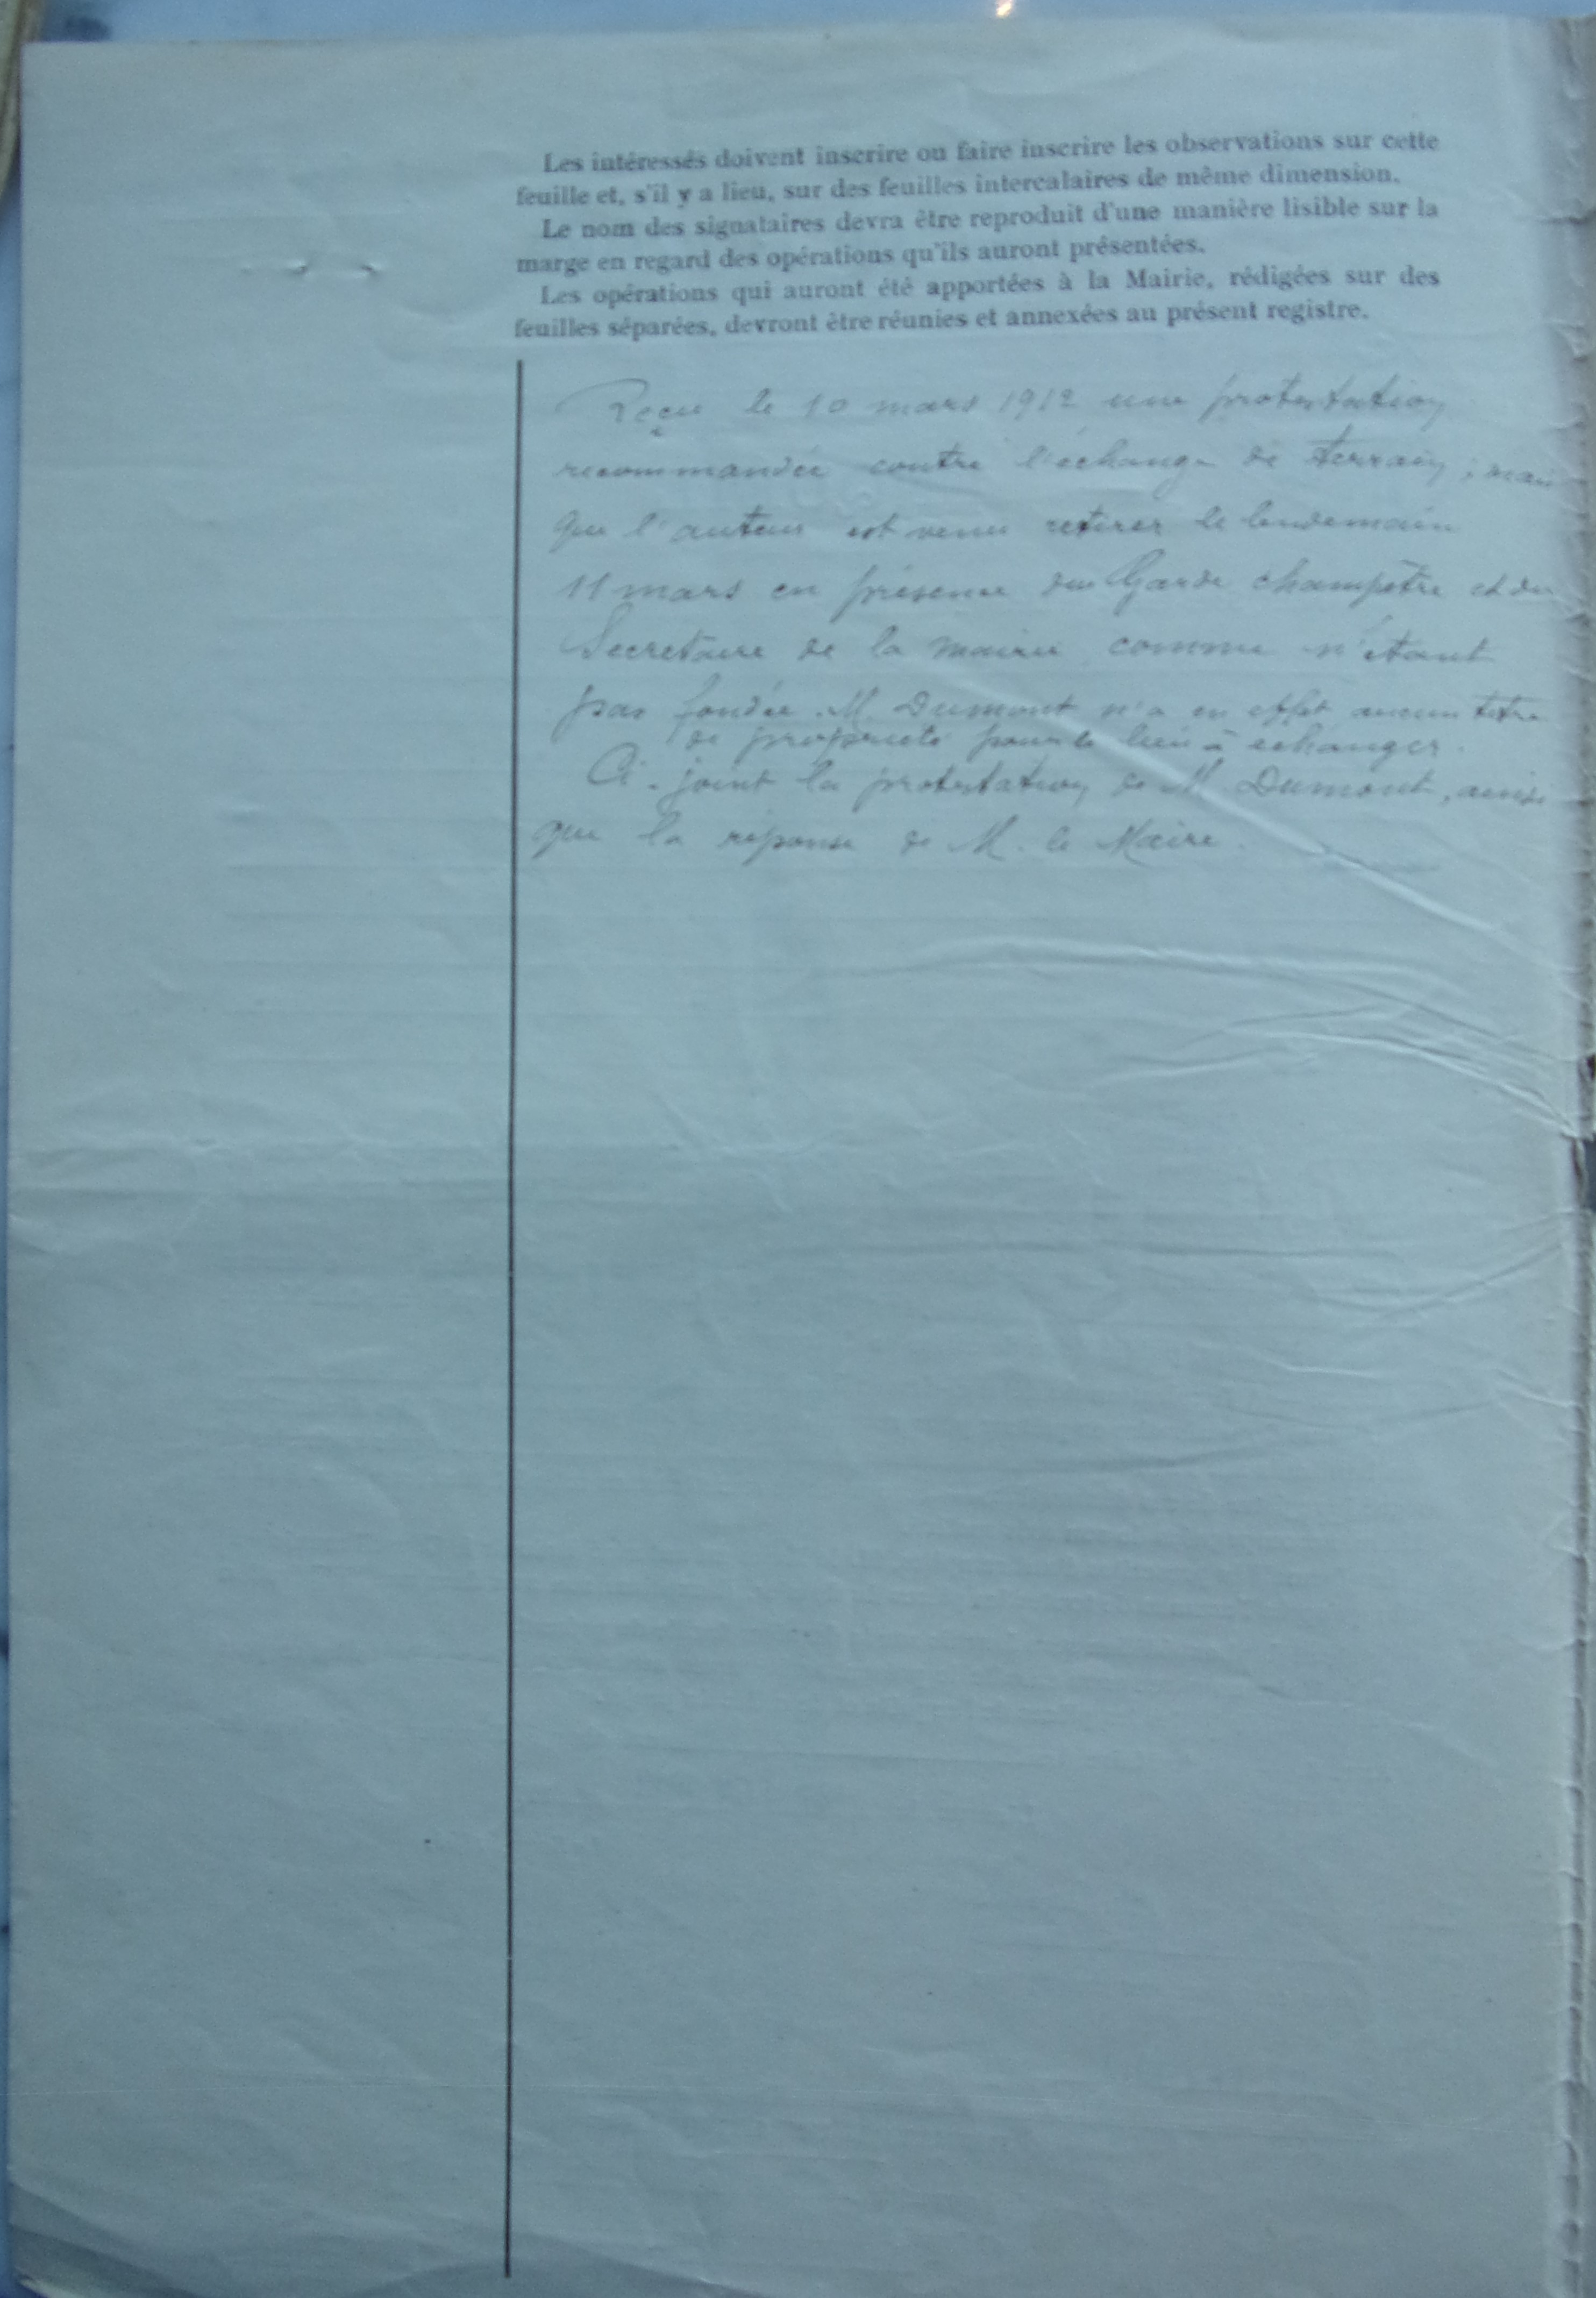 Les intéressés doivent inscrire ou faire inscrire les observations sur cette
feuille et, s'il y a lieu, sur des feuilles intercalaires de même dimension.
Le nom des signataires devra être reproduit d'une manière lisible sur la
marge en regard des opérations qu'ils auront présentées.
Les opérations qui auront été apportées à la Mairie, rédigées sur des
feuilles séparées, devront être réunies et annexées au présent registre.
Reçu le 10 mars 1912 une protestation
recommandée contre l'échange de terrain ; mais
que l'auteur est venu retirer le lendemain
11 mars en présence du Garde champêtre et du
Secretaire de la mairie comme n'étant
pas fondée. M. Dumont n'a en effet aucun titre
de propriété pour le bien à échanger.
Ci-joint la protestation de M. Dumont, ainsi
que la réponse de M. le Maire.